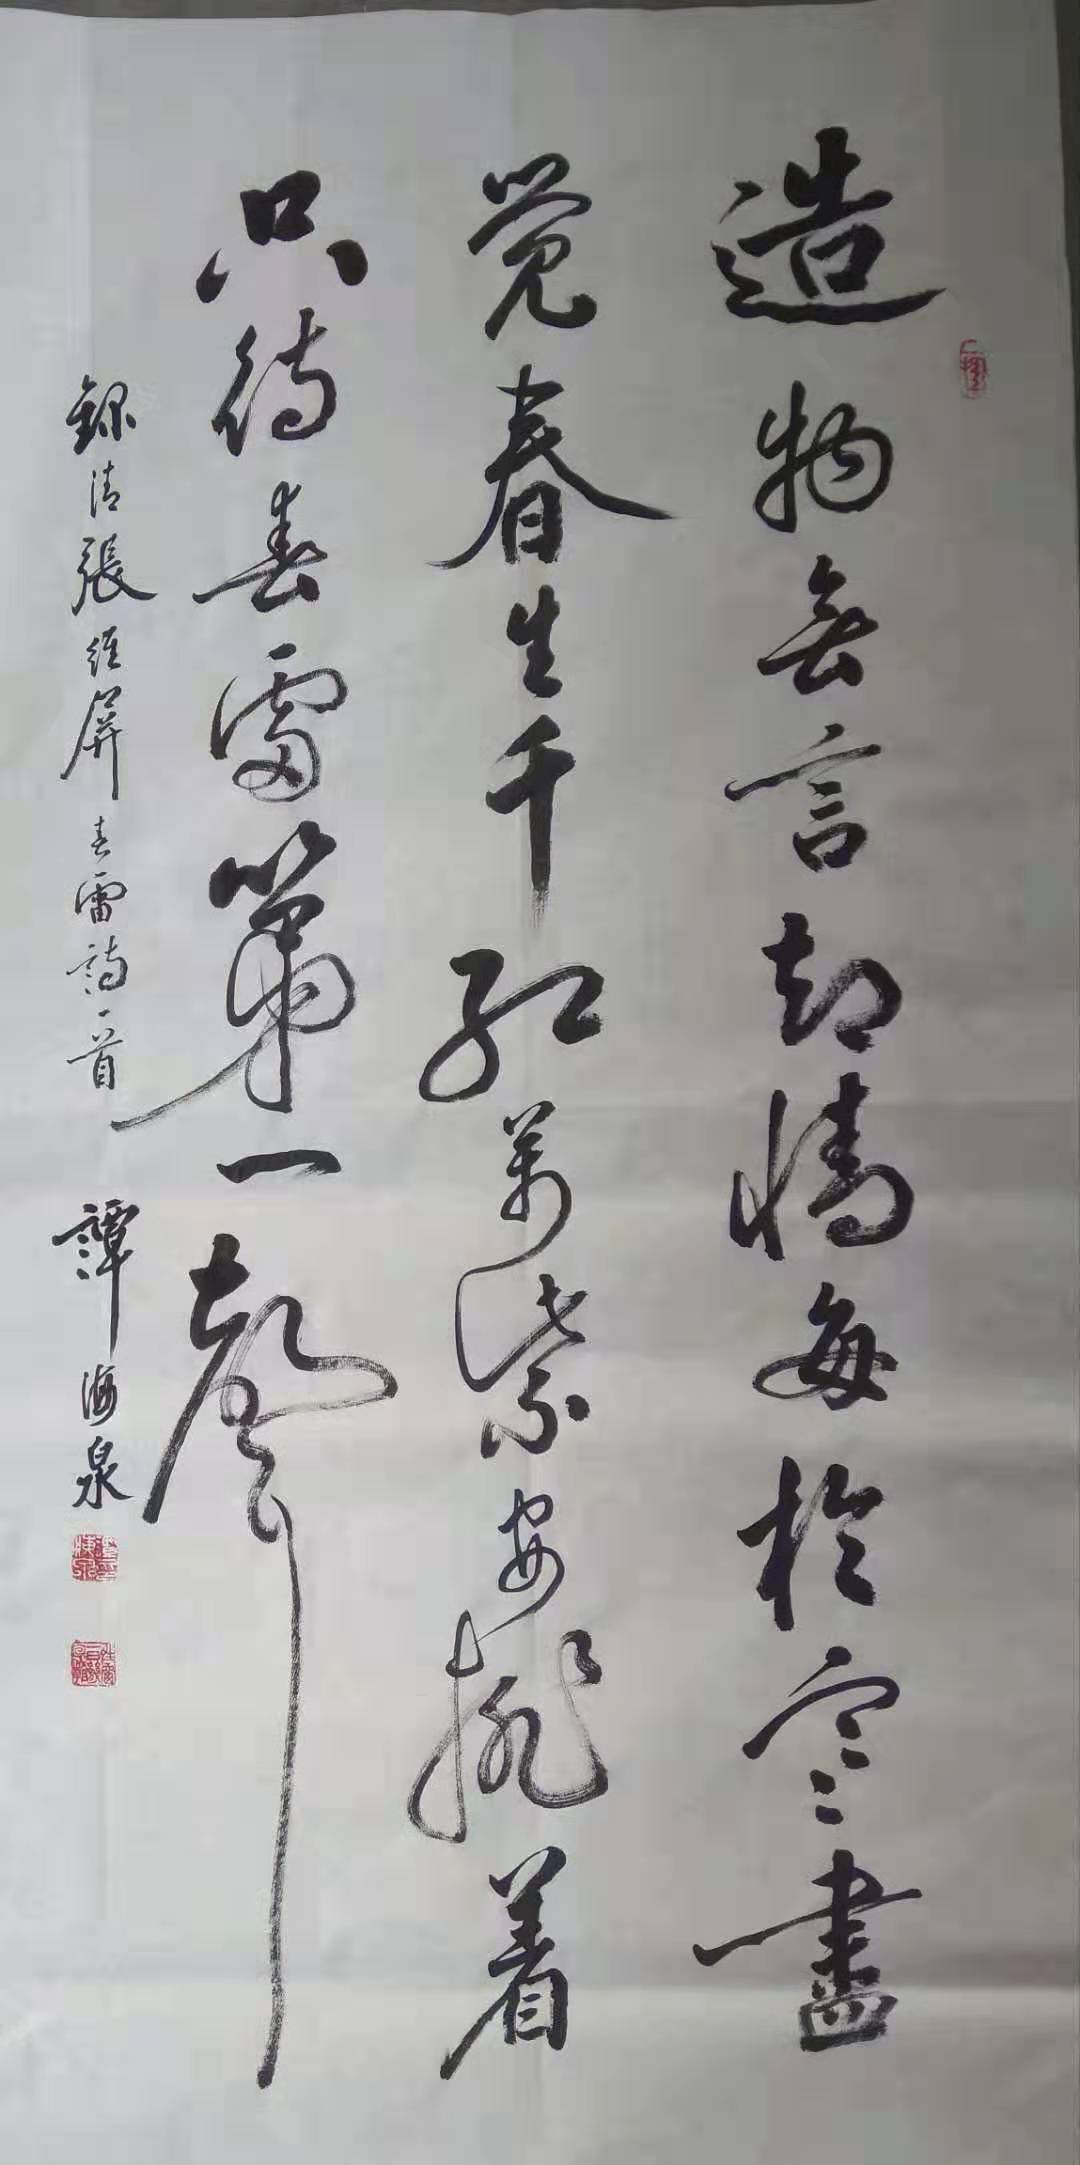 造物無言却情每於寒盡
觉春生千红萬紫安排着
只待春雷第一聲
録清張維屏春雷詩一首
譚海泉